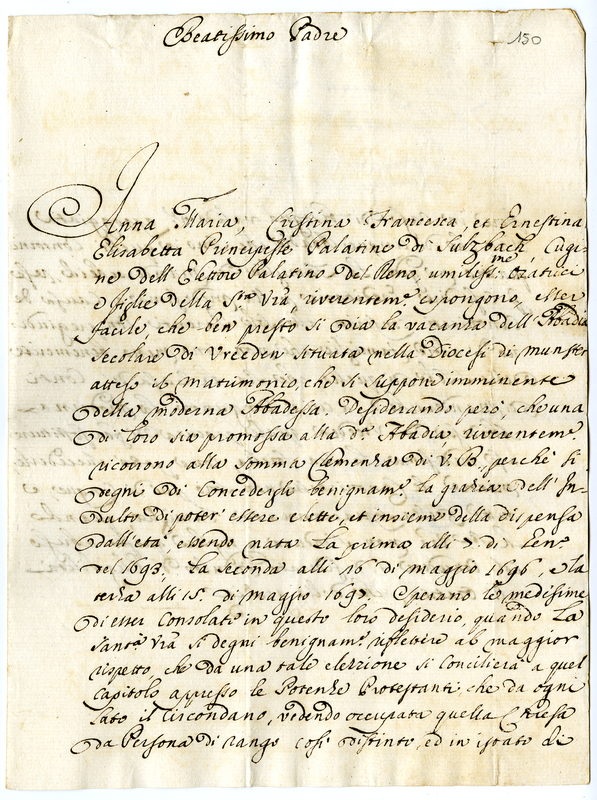 Beatissimo Padre
150
Anna Maria, Cristina Francesca, et Ernestina
Elisabetta Principesse Palatine di Sulzbach, Cugi-
ne dell'Elettore Palatino del Reno umiliss:me oratrici
e figlie della S.tà V.rà, riverentem.e espongono, esser
facile, che ben presto si dia la vacanza dell'Abadia
secolare di Vreeden situata nella Diocesi di munster
atteso il matrimonio, che si suppone imminente
della moderna Abadessa. Desiderando però, che una
di loro sia promossa alla d.a Abadia, riverentem.e
ricorrono alla somma Clemenza di V. B., perché si
degni di Concedergli benignam.e la grazia dell'In-
dulto di poter essere elette, et insieme della dispensa
dall'età, essendo nata la prima alli 7 di Gen.o
del 1693, la seconda alli 16 di maggio 1696, e la
terza alli 15. di maggio 1697. Sperano le medesime
di esser Consolate in questo loro desiderio, quando la
Sant.tà V.rà si degni benignam.e riflettere al maggior
rispetto, che da una tale elezzione si Concilierà a quel
Capitolo appresso le Potenze Protestanti, che da ogni
lato il Circondano, vedendo occupata quella Chiesa
da Persona di rango così distinto, ed in istato di